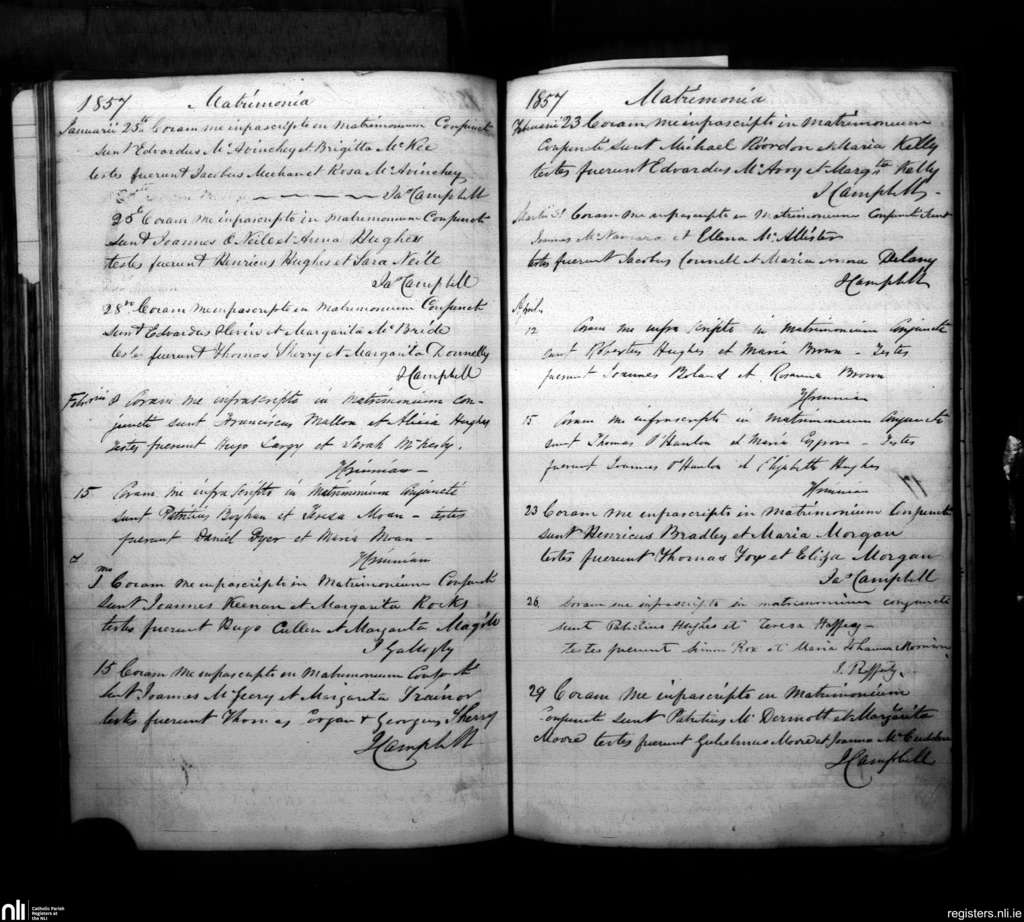 1857 Matrimonia
Januarii 25th Coram me infrascripto in matrimonium Conjuncti
sunt Edvardus McAvinchey et Brigitta McKee
testes fuerunt Jacobus Meehan et Rosa McAvinchey
Jas Campbell
25th Coram me infrascripto in matrimonium Conjuncti
sunt Joannes O Neile et Anna Hughes
testes fuerunt Henricus Hughes et Sara Neile
Jas Campbell
28th Coram me infrascripto in matrimonium Conjuncti
sunt Edvardus et Margarita McBride
testes fuerunt Thomas Sherry et Margarita Donnelly
J Campbell
Februarii 8 Coram me infrascripto in matrimonium con-
juncti sunt Franciscus Mallon et Alicia Hughes
testes fuerunt Hugo Largy et Sarah
15 Coram me infra scripto in Matrimonium Conjuncti
sunt Patritius et Teresa Moan - testes
fuerunt Daniel Dyer et Maria Moan -
1mo Coram me infrascripto in Matrimonium Conjuncti
sunt Joannes Keenan et Margarita Rocks
testes fuerunt Hugo Cullen et Margarita
J Gallogly
15 Coram me infrascripto in Matrimonium Conjuncti
sunt Joannes McGeery et Margarita Trainor
testes fuerunt Thomas Cogan & Georgius Sherry
J Campbell
1857 Matrimonia
Februarii 23 Coram me infrascripto in matrimonium
Conjuncti sunt Michael Riordon et Maria Kelly
testes fuerunt Edvardus McAvoy et Margta Kelly
J Campbell
Martii Coram me infrascripto in Matrimonium Conjuncti sunt
McNamara et Ellena McAllister
testes fuerunt Jacobus Connell et Maria Anna Delany
J Campbell
Aprilis
12 Coram me infra scripto in matrimonium Conjuncti
sunt Hughes et Maria Brown - Testes
fuerunt Joannes Boland et Rosanna Brown
15 Coram me infrascripto in matrimonium Conjuncti
sunt Thomas O'Hanlon et Maria - Testes
fuerunt Joannes O'Hanlon et Elizabeth Hughes
23 Coram me infrascripto in matrimonium Conjuncti
sunt Henricus Bradley et Maria Morgan
testes fuerunt Thomas Fox et Eliza Morgan
Jas Campbell
26. Coram me infrascripto in matrimonium conjuncti
sunt Patritius Hughes et Teresa
testes fuerunt et Maria Johanna
J. Rafferty.
29 Coram me infrascripto in Matrimonium
Conjuncti sunt Patritius McDermott et Margarita
Moore testes fuerunt Gulielmus Moore et Joanna
J Campbell
nli Catholic Parish
Registers at
the NLI
registers.nli.ie